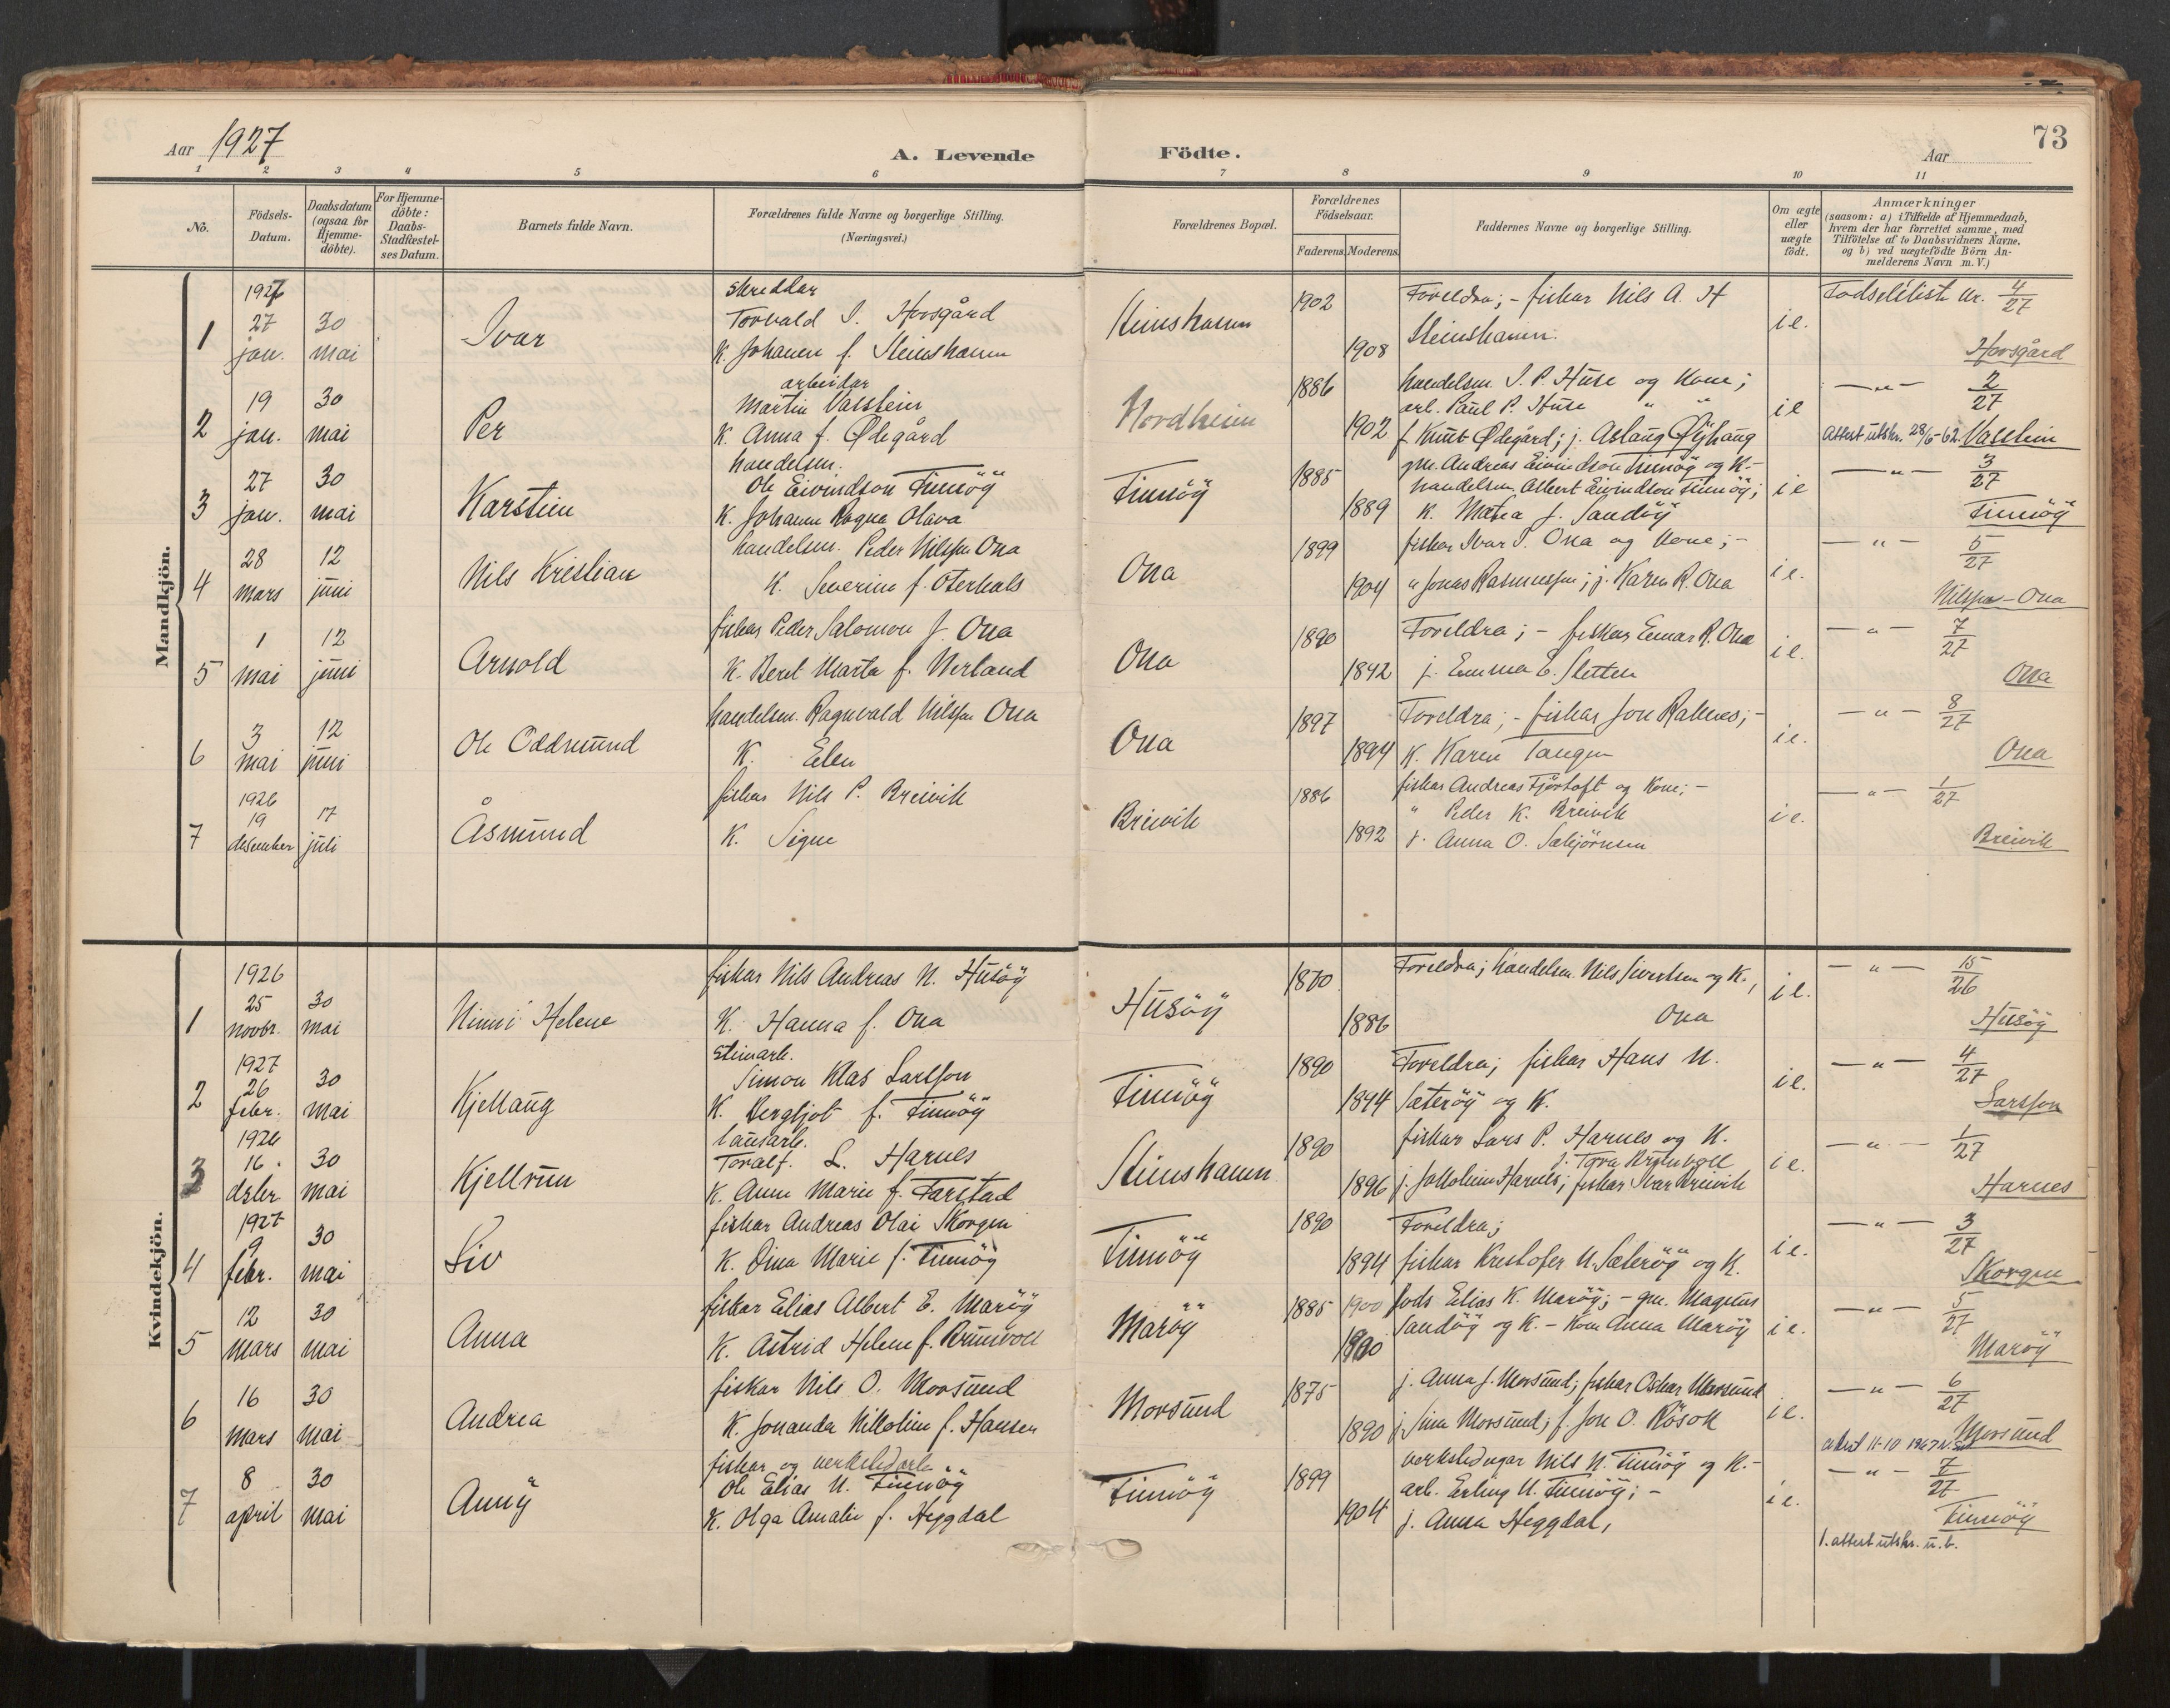 73
Aar 1927
A. Levende Födte.
Aar
1 2 3 4 5 6 7 8 9 10 11
No.
Födsels-Datum.
Daabsdatum (ogsaa for Hjemme-döbte).
For Hjemme-döbte: Daabs-Stadfæstel-ses Datum.
Barnets fulde Navn.
Forældrenes fulde Navne og borgerlige Stilling.
(Næringsvei.)
Forældrenes Bopæl.
Forældrenes Födselsaar.
Faderens. Moderens.
Faddernes Navne og borgerlige Stilling.
Om ægte eller uægte födt.
Anmærkninger
(saasom: a) i Tilfælde af Hjemmedaab, hvem der har forrettet samme, med Tilföielse af to Daabsvidners Navne. og b) ved uægtefödte Börn An-melderens Navn m. V.)
Mandkjön.
1 1927 27 jan. 30 mai Ivar
skreddar
Torvald I. Hovsgård
K. Johanne f. Steinshamn
Steinshamn 1902 1908
Foreldra; - fiskar Nils A. H
Steinshamn.
i e.
Fodselsliste nr. 4/27
Hovsgård
2 19 jan. 30 mai Per
arbeidar
Martin Vasstein
K. Anna f. Ødegård
Nordheim 1886 1902
handelsm. I. P. Huse og Kone;
arb. Paul P. Huse " "
f Knut Ødegård; j. Aslaug Øyhaug
i e
— " — 2/27
Attest utskr. 28/6-62. Vasstein
3 27 jan. 30 mai Karstein
handelsm.
Ole Eivindson Finnöy
K. Johanne Ragna Olava
Finnöy 1885 1889
gm. Andreas Eivindson Finnöy og K.-
handelsm Albert Eivindson Finnöy;
K. Matea f. Sandöy
i e
— " — 3/27
Finnöy
4 28 mars 12 juni Nils Kristian
handelsm. Peder Nilssen Ona
K. Severine f. Oterhals
Ona 1899 1904
fiskar Ivar P. Ona og Kone; -
" Jonas Rasmussen; j. Karen R. Ona
i e.
— " — 5/27
Nilssen-Ona
5 1 mai 12 juni Arnold
fiskar Peder Salomon J. Ona
K. Beret Marta f. Nerland
Ona 1890 1892
Foreldra; - fiskar Einar R. Ona
j. Emma E. Sletten
i e.
— " — 7/27
Ona
6 3 mai 12 juni Ole Oddmund
handelsm. Ragnvald Nilssen Ona
K. Elen
Ona 1897 1894
Foreldra; - fiskar Jon Raknes; -
K. Karen Tangen
i e.
— " — 8/27
Ona
7 1926 19 desember 17 juli Åsmund
fiskar Nils P. Breivik
K. Signe
Breivik 1886 1892
fiskar Andreas Fjørtoft og Kone; -
" Peder K. Breivik
Anna O. Sæbjörnsen
i e.
— " — 1/27
Breivik
Kvindekjön.
1 1926 25 novbr. 30 mai Ninni Helene
fiskar Nils Andreas N. Husöy
K. Hanna f. Ona
Husöy 1880 1886
Foreldra; handelsm. Nils Sivertsen og K.,
Ona
i e.
— " — 15/26
Husöy
2 1927 26 febr. 30 mai Kjellaug
steinarb.
Simon Klas Larsson
K. Bergljot f. Finnöy
Finnöy 1890 1894
Foreldra; fiskar Hans N.
Sæteröy og K.
i e.
— " — 4/27
Larsson
3 1926 16 dsbr. 30 mai Kjellrun
lausarb.
Toralf. L. Harnes
K. Anne Marie f. Farstad
Steinshamn 1890 1896
fiskar Lars P. Harnes og K.
j. Tora Bruhvoll
j. Jakobine Harnes; fiskar Ivar Breivik
i e.
— " — 1/27
Harnes
4 1927 9 febr. 30 mai Liv
fiskar Andreas Olai Skorgen
K. Dina Marie f. Finnöy
Finnöy 1890 1894
Foreldra;
fiskar Kristofer N. Sæteröy og K.
i e.
— " — 3/27
Skorgen
5 12 mars 30 mai Anna
fiskar Elias Albert E. Maröy
K. Astrid Helene f. Brunvoll
Maröy 1885 1900 1900
fods Elias K. Maröy; - gm. Magnus
Sandöy og K. - Kone Anna Maröy
i e.
— " — 5/27
Maröy
6 16 mars 30 mai Andrea
fiskar Nils O. Morsund
K. Jonanda Nikoline f. Hansen
Morsund 1875 1890
j. Anna J. Morsund; fiskar Oskar Morsund
j. Sina Morsund; f. Jon O. Rösok
i e.
— " — 6/27
attest 11-10 1967 Morsund
7 8 april 30 mai Anny
fiskar og verkstedarb
Ole Elias N. Finnöy
K. Olga Amalie f. Heggdal
Finnöy 1899 1904
verkstedeigar Nils N. Finnöy og K.-
arb. Erling N. Finnöy; -
j. Anna Heggdal,
i e.
— " — 7/27
Finnöy
1. attest utskr. u.b.